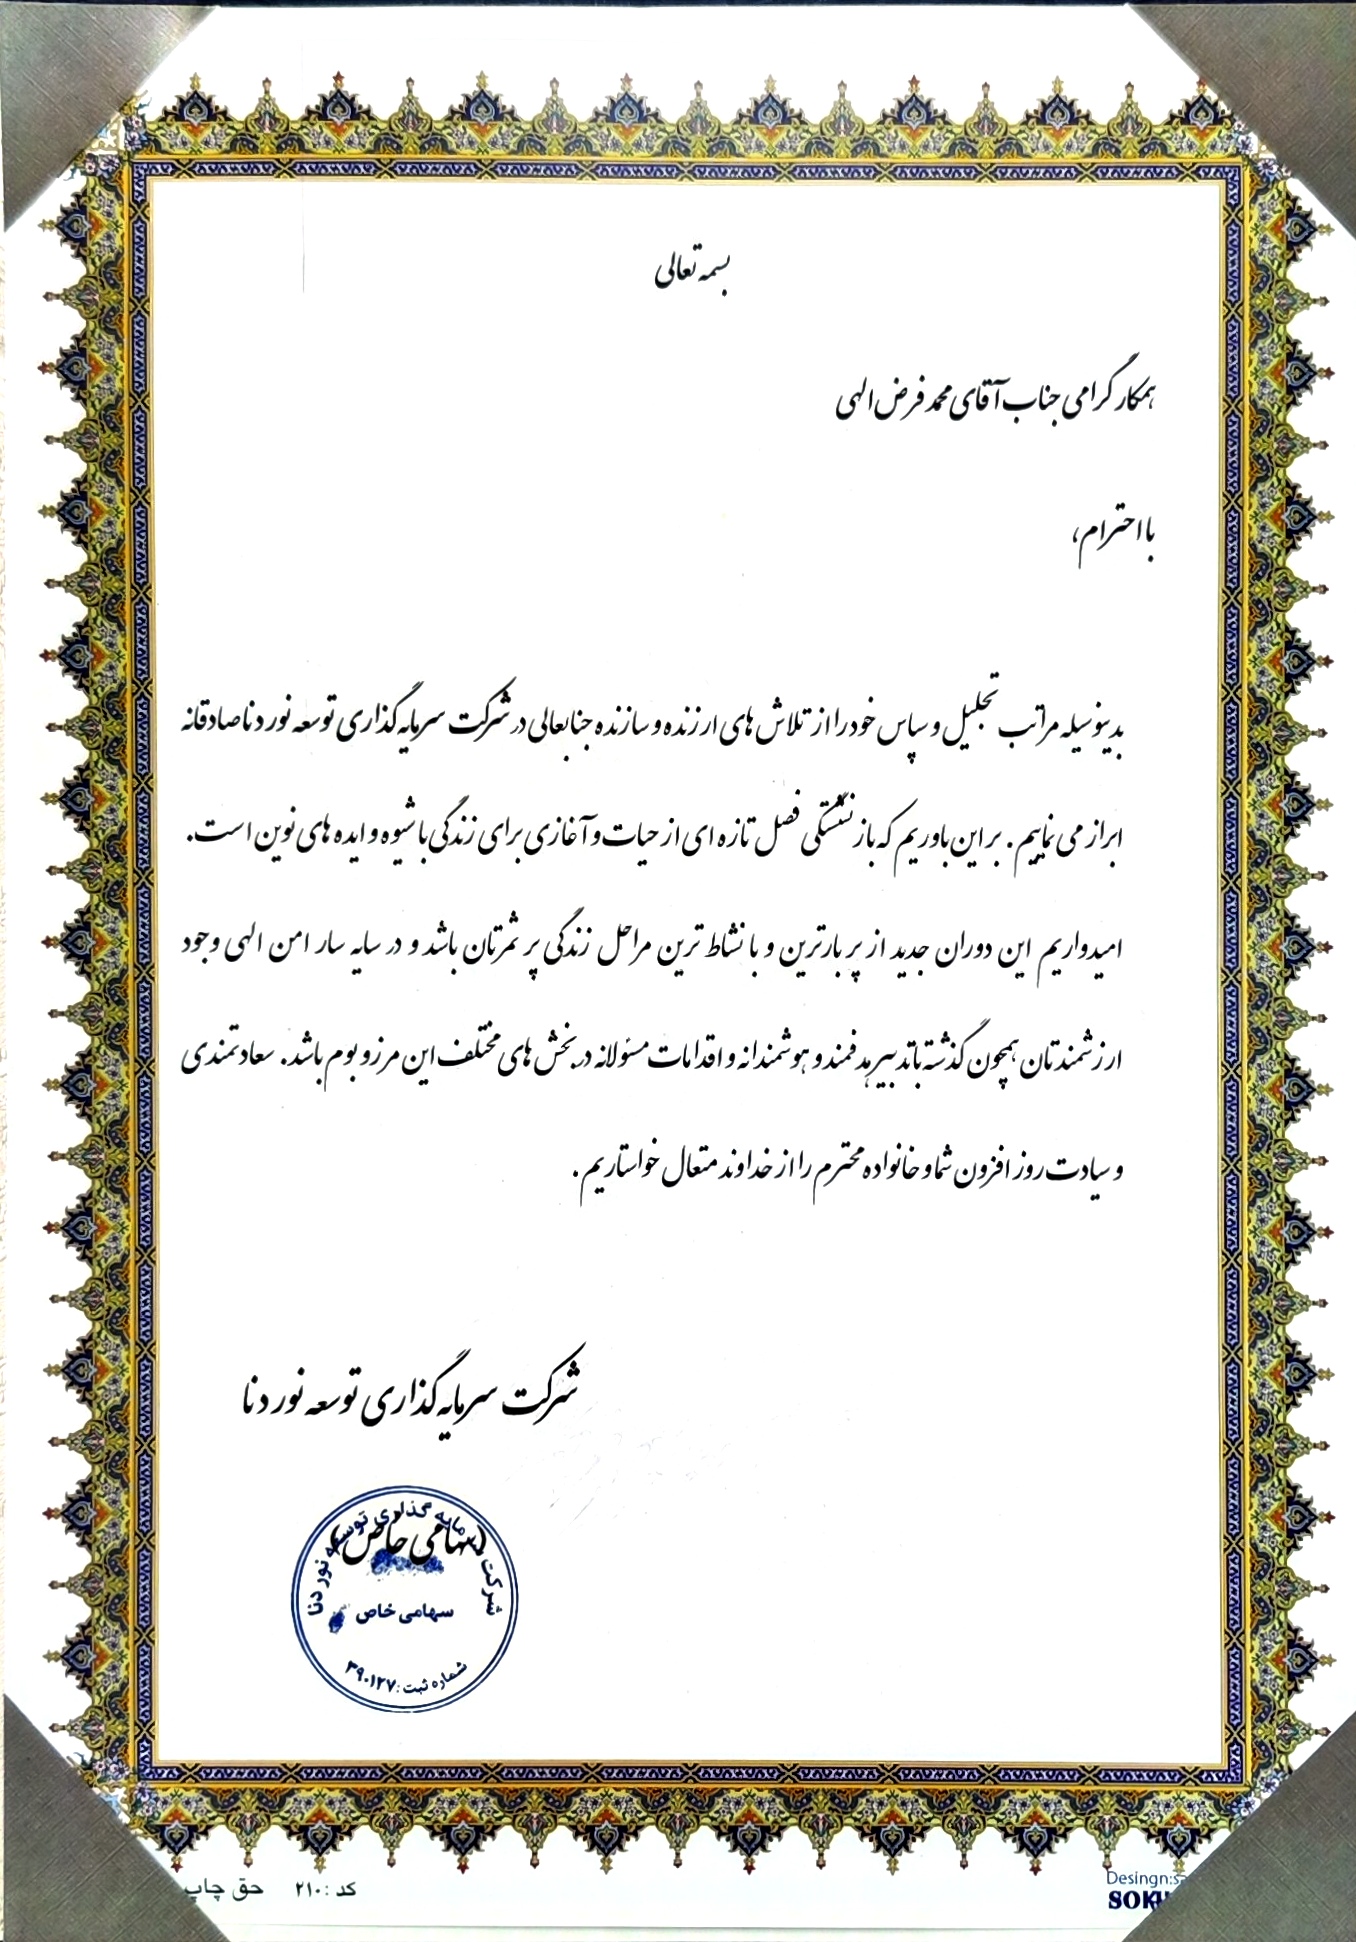 بسمه تعالی
همکار گرامی جناب آقای محمد فرض الهی
با احترام،
بدینوسیله مراتب تجلیل و سپاس خود را از تلاش های ارزنده و سازنده جنابعالی در شرکت سرمایه گذاری توسعه نور دنا صادقانه
ابراز می نماییم. بر این باوریم که بازنشستگی فصل تازه ای از حیات و آغازی برای زندگی با شیوه و ایده های نوین است.
امیدواریم این دوران جدید از پر بارترین و با نشاط ترین مراحل زندگی پر ثمرتان باشد و در سایه سار امن الهی وجود
ارزشمندتان همچون گذشته با تدبیر هدفمند و هوشمندانه و اقدامات مسئولانه در بخش های مختلف این مرز و بوم باشد. سعادتمندی
و سیادت روز افزون شما و خانواده محترم را از خداوند متعال خواستاریم.
شرکت سرمایه گذاری توسعه نور دنا
(سهامی خاص)
شرکت سرمایه گذاری توسعه نور دنا
سهامی خاص
شماره ثبت: ۳۹۰۱۲۷
حق چاپ کد : ۲۱۰
Desingn: